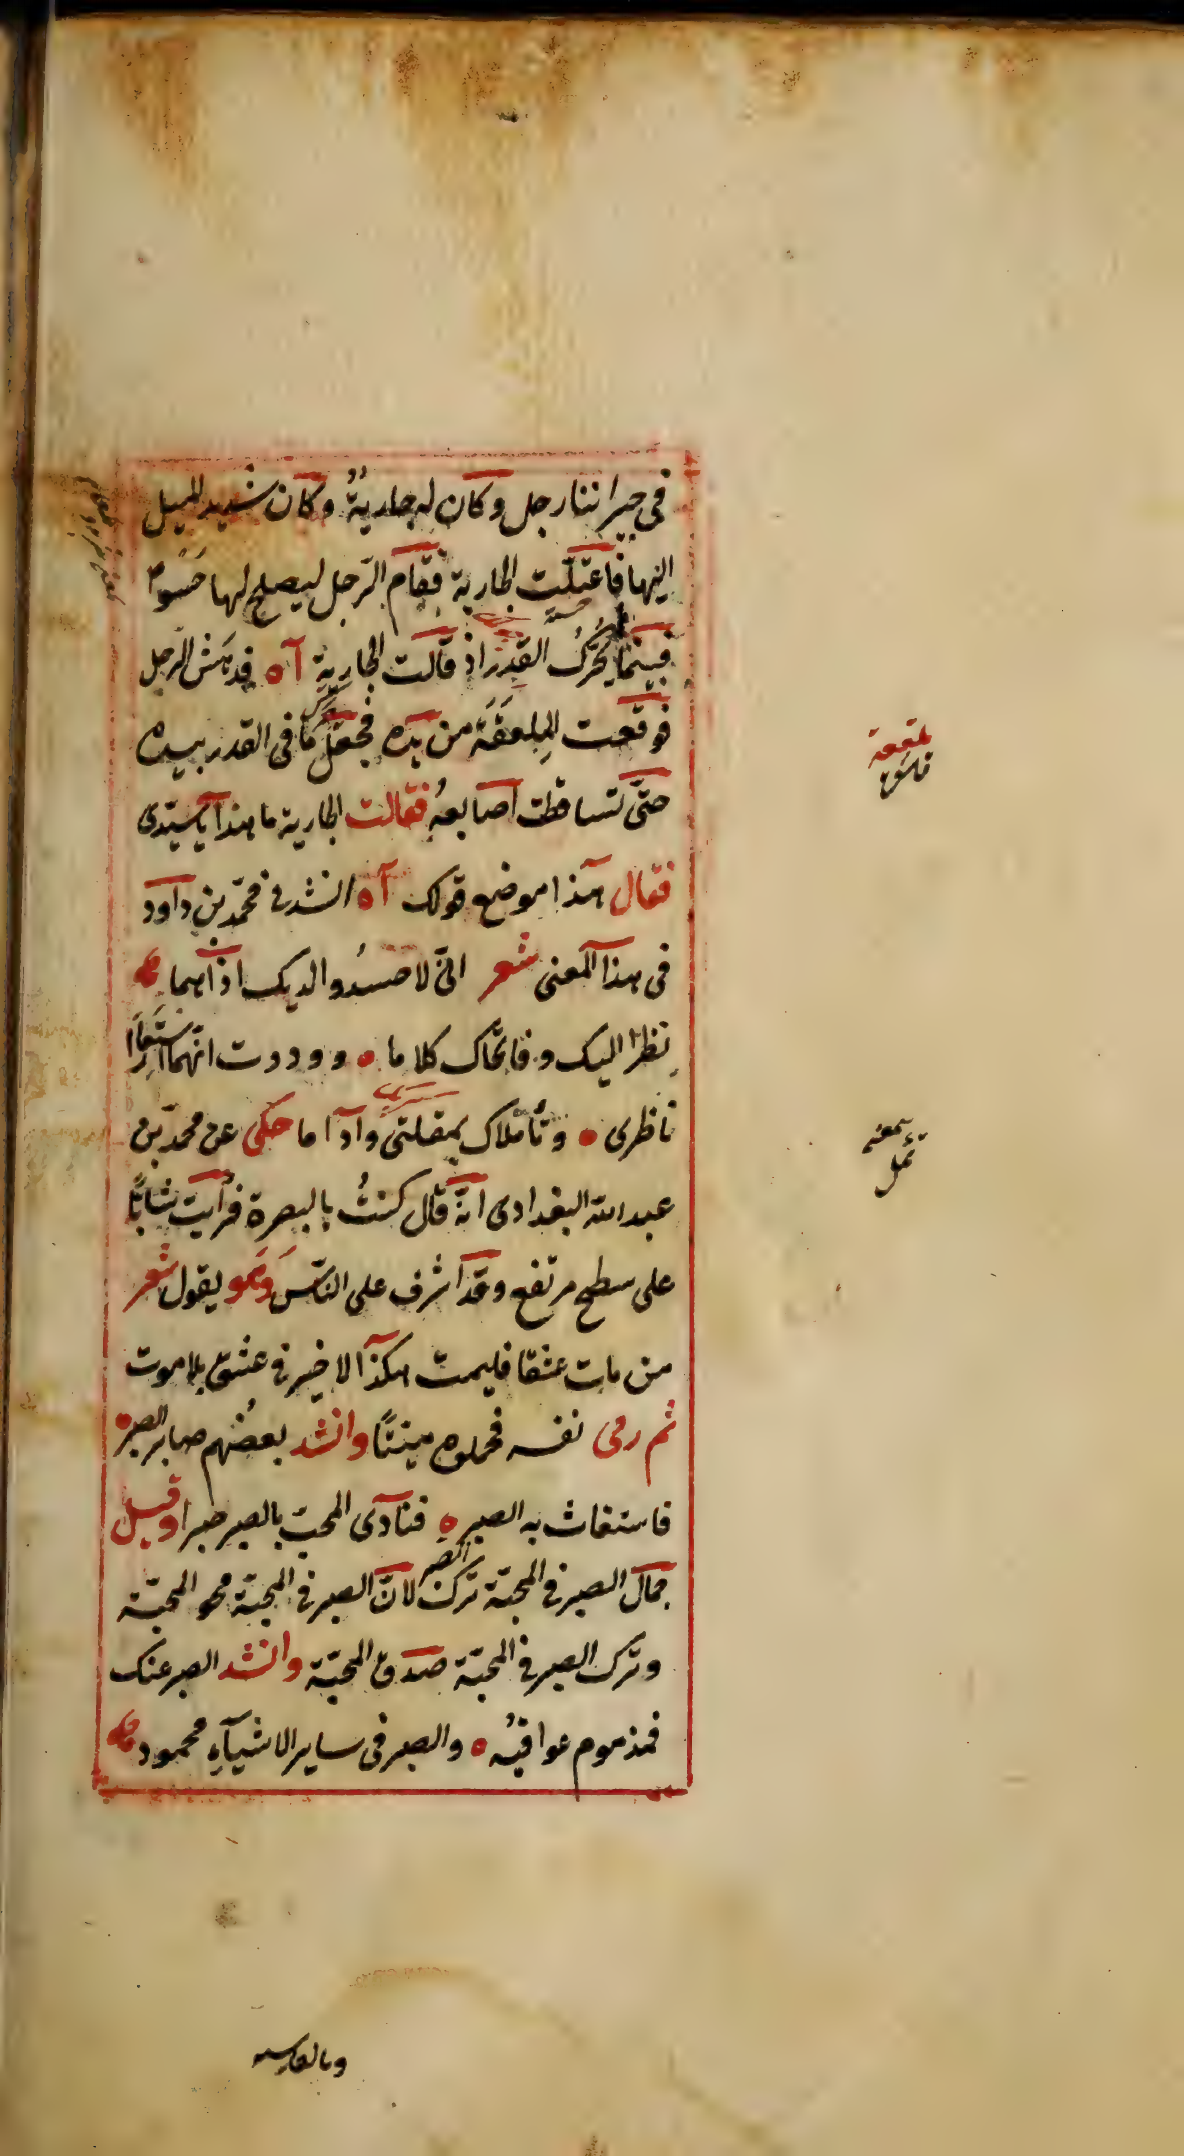 فى جيراننا رجل وكان له جاريةٌ وكان شديد الميل
اليها فاعتلّت الجارية فقام الرّجل ليصلح لها حَسْواً
فبينما يُحرّكُ القدر اذ قالت الجارية آه فدهش الرجل
فوقعت المِلعَقَة من يده فجعل يحرك ما فى القدر بيده
حتّى تساقطت اصابعهُ فقالت الجارية ما هذا يا سيّدى
فقال هذا موضع قولك آه انشدنى محمّد بن داود
فى هذا المعنى شعر انّى لاحسدُ والديك اذا هما
نظرا اليك وفاتحاك كلاما ووددت انّهما استعارا
ناظرى وتأملاك بمقلتى وادآ ما حكى عن محمد بن
عبد الله البغدادى انّه قال كنتُ بالبصرة فرأيت شابّاً
على سطح مرتفع وقد اشرف على النّاس وهو يقول شعر
من مات عشقا فليمت هكذا لا خير فى عشق بلا موت
ثم رمى نفسه فحملوه ميّتاً وانشد بعضهم صابر الصبر
فاستغاث به الصبر فنادى المحبّ بالصبر صبرا وقيل
جمال الصبر فى المحبّة ترك الصبر لانّ الصبر فى المحبّة محو المحبّة
وترك الصبر فى المحبّة صدق المحبّة وانشد الصبر عنك
فمذموم عواقبُه والصبر فى ساير الاشيآءِ محمود
وبالفارسيه